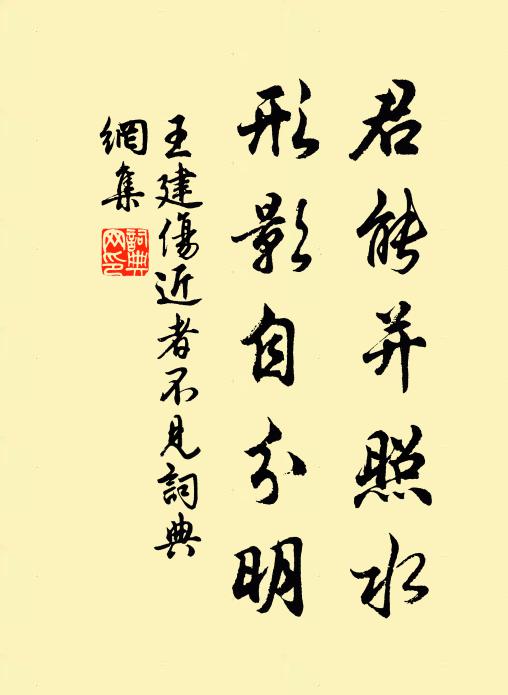 君能并照水
形影自分明
王建傷近者不見詞典
網集
詞典网印